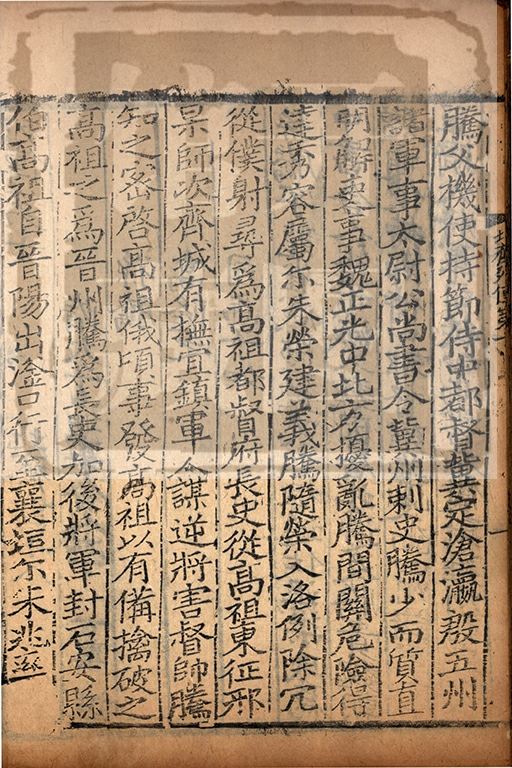 騰父機使持節侍中都督冀定滄瀛殷五州
諸軍事太尉公尚書令冀州刺史騰少而質直
明解吏事魏正光中北方擾亂騰間關危險得
達秀容屬尒朱榮建義騰隨榮入洛例除冗
從僕射尋爲高祖都督府長史從高祖東征邢
杲師次齊城有撫宜鎮軍人謀逆將害督帥騰
知之密啓高祖俄頃事發高祖以有備擒破之
高祖之爲晉州騰爲長史加後將軍封石安縣
伯高祖自晉陽出滏口行至襄垣尒朱兆